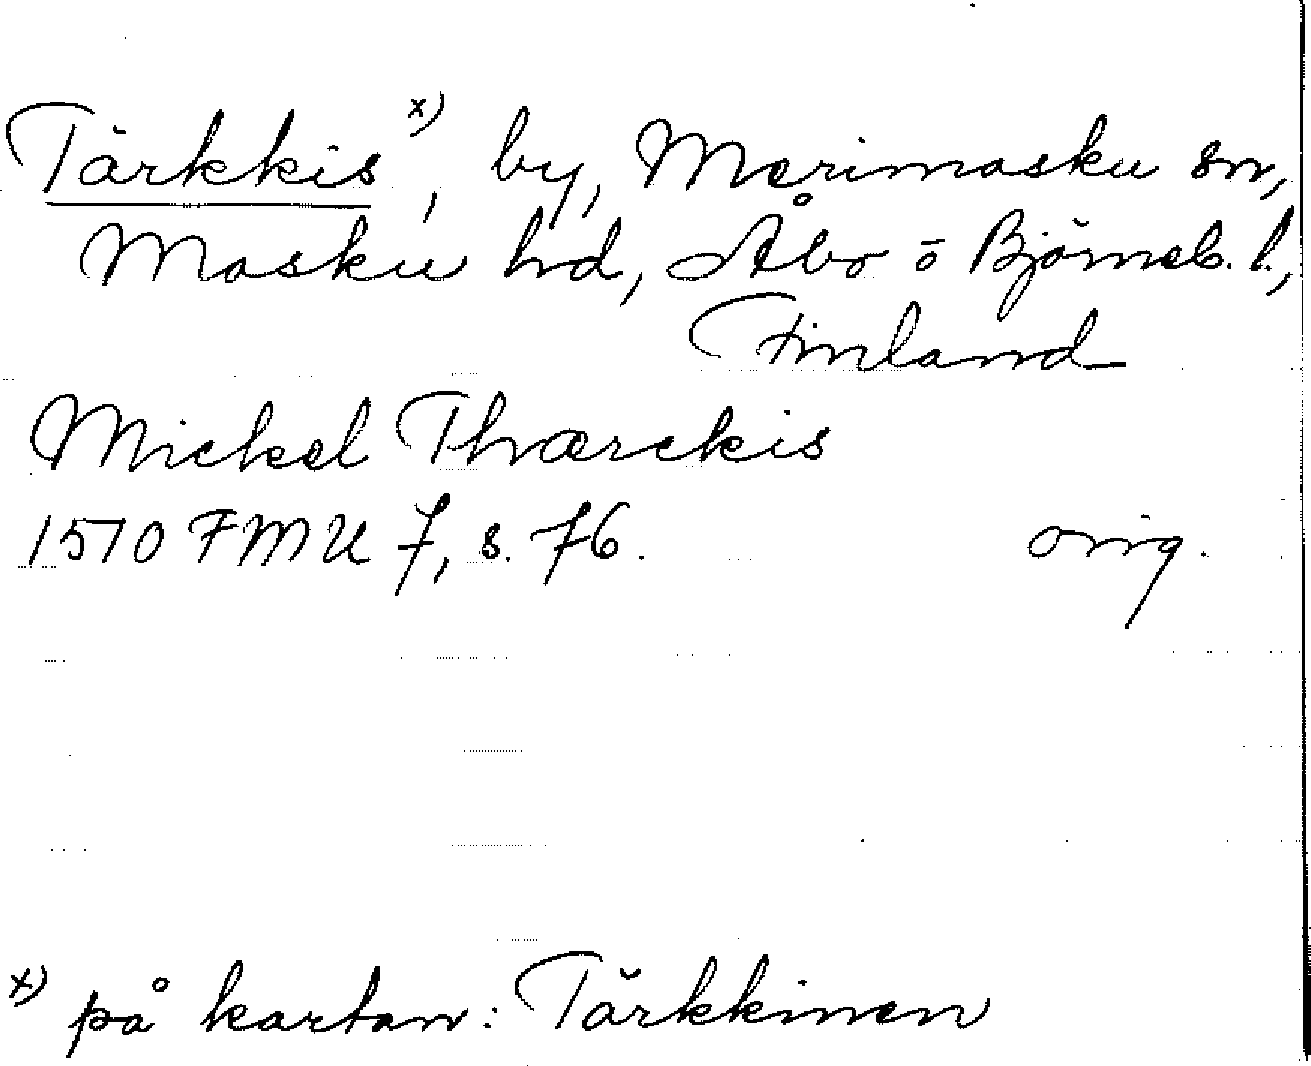 Tärkkis x), by, Merimasku sn,
Masku hd, Åbo o Björneb. l.,
Finland
Mickel Thærckis
1570 FMU 7, s. 76. orig.
x) på kartan: Tärkkinen